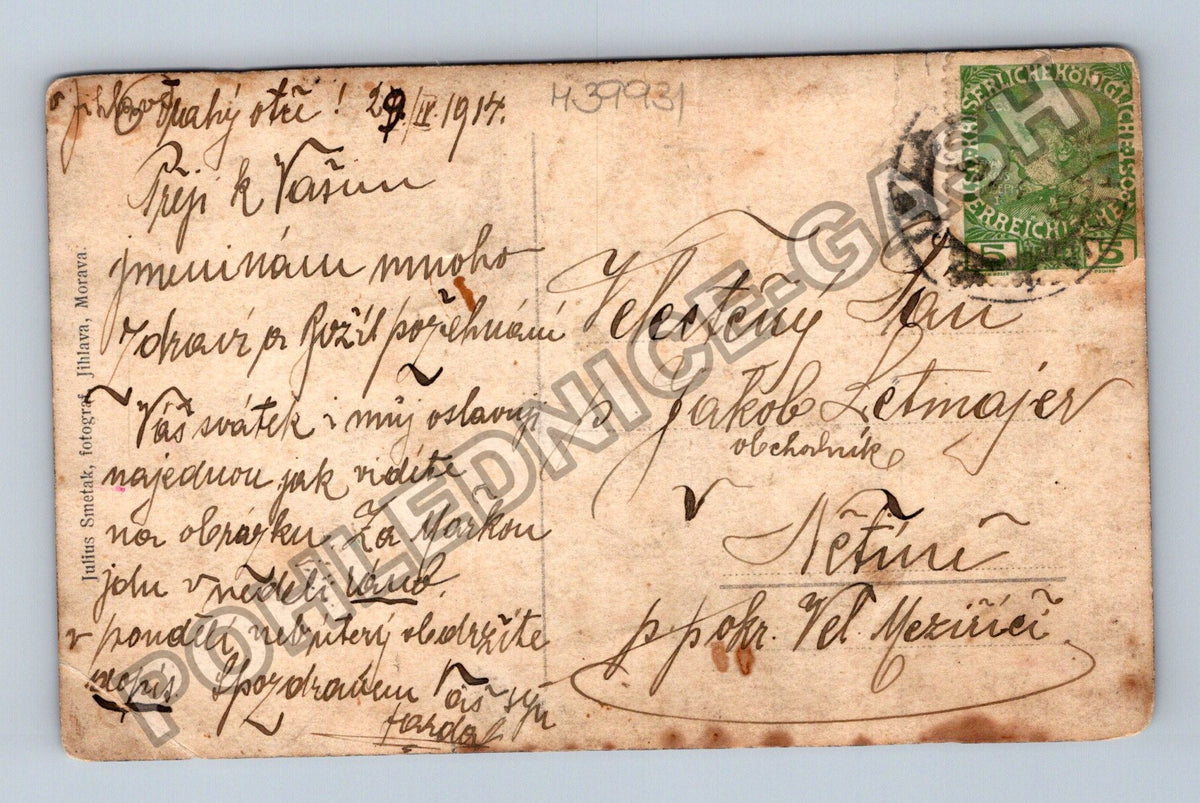 Jihlava
Drahý otče! 29/IV. 1914.
H39931
Přeji k Vašim
jmeninám mnoho
zdraví a Boží požehnání
Váš svátek i můj oslavuji
najednou jak vidíte
na obrázku. Za Mařkou
jdu v neděli ráno.
v pondělí neb úterý obdržíte
dopis. S pozdravem Váš syn
Julius Smetak, fotograf, Jihlava, Morava.
Velectěný Pan
p. Jakob Letmajer
obchodník
v
Netíně
p pokr. Vel. Meziříčí
5 5
POHLEDNICE-GASH